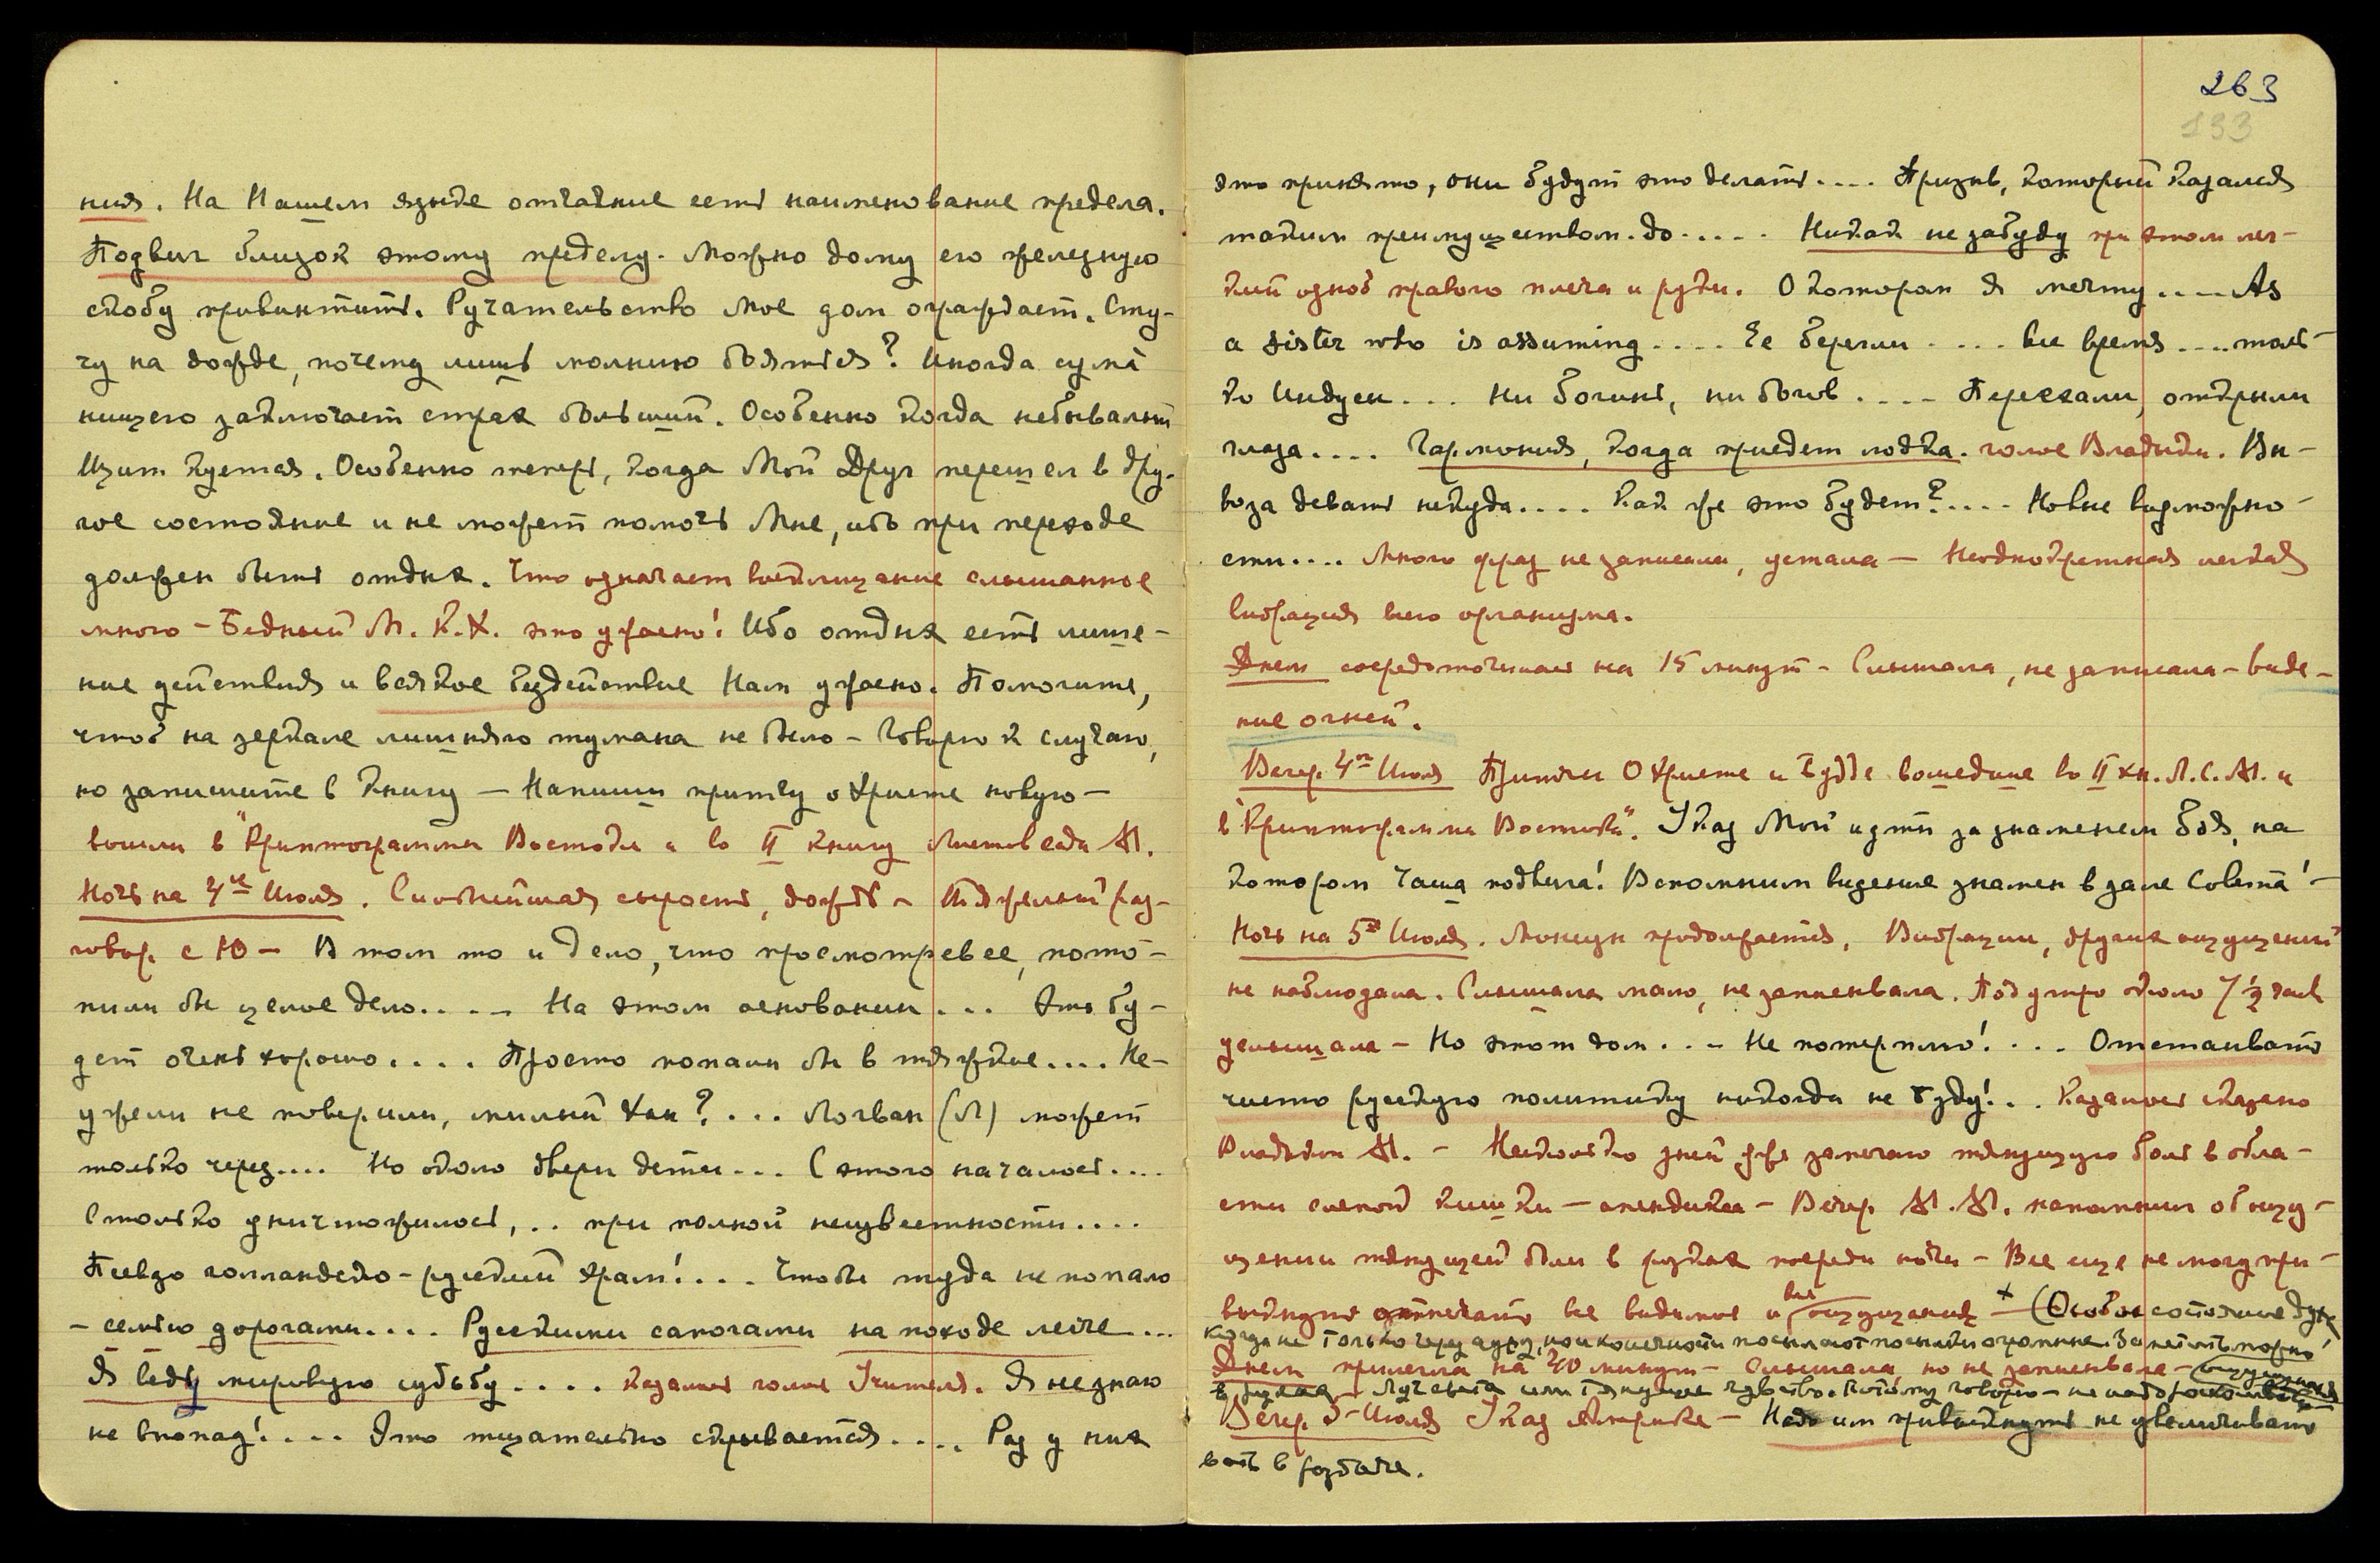 ния. На Нашем языке отчаяние есть наименование предела.
Подвиг близок этому пределу. Можно дому его железную
скобу привинтить. Ручательство Мое дом ограждает. Сту-
чу на дожде, почему лишь молнию боятся? Иногда сума
нищего заключает страх больший. Особенно когда небывалый
Щит куется. Особенно теперь, когда Мой Друг перешел в дру-
гое состояние и не может помочь Мне, ибо при переходе
должен быть отдых. Что означает восклицание слышанное
много – Бедный М. К.Х. это ужасно! Ибо отдых есть лише-
ние действия и всякое бездействие Нам ужасно. Помогите,
чтоб на зеркале лишняго тумана не было – Говорю к случаю,
но запишите в книгу – Напиши притчу о Христе новую –
вошли в "Криптограммы Востока и во II книгу Листов Сада М.
Ночь на 4ое Июля. Сильнейшая сырость, дождь –
говор. с Ю – В том то и дело, что просмотрев ее, пото-
пили бы целое дело..... На этом основании... Это бу-
дет очень хорошо.... Просто попали бы в тяжкие.... Не-
ужели не поверили, милый Хан?... Логван (Л) может
только через.... Но около двери дети... С этого началось....
Столько уничтожилось,.. при полной неизвестности....
Псевдо голландско-русский храм!.... Чтобы туда не попало
– семью дорогами.... Русскими сапогами на походе легче...
Я веду мировую судьбу.... Казался голос Учителя. Я не знаю
не впопад!.... Это тщательно скрывается.... Раз у них
263
133
это принято, они будут это делать.... Призыв, который казался
таким преимуществом. до..... Никак не забуду при этом лег-
кий озноб правого плеча и руки. О котором я мечту.... As
a sister who is assuming.... Ее берегли.... все время.... толь-
ко Индусы... Ни богинь, ни богов.... Переехали, открыли
глаза.... Гармония, когда приедет лодка. голос Владыки. Вы-
воза девать некуда.... Как же это будет?..... Новые возможно-
сти.... Много фраз не записали, устала – Неоднократная легкая
вибрация всего организма.
Днем сосредоточилась на 15 минут – Слышала, не записала – виде-
ние огней.
Вечер. 4ое Июля Притчи О Христе и Будде вошедшие во II кн. Л.С.М. и
в "Криптограммы Востока". Указ Мой идти за знаменем боя, на
котором Чаша подвига! Вспомним видение знамен в зале Совета! –
Ночь на 5ое Июля. Монсун продолжается, Вибрации, других ощущений
не наблюдала. Слышала мало, не записывала. Под утро около 7½ часов
услышала – Но этот дом... – Не потерплю!... Отстаивать
чисто русскую политику никогда не буду!.. Казалось сказано
Владыкой М. – Несколько дней уже замечаю тянущую боль в обла-
сти слепой кишки – апендикса – Вечер. М.М. напомнил об ощу-
щении тянущей боли в руках посреди ночи – Все еще не могу при-
выкнуть отмечать все видимое и все ощущения – + (Особое состояние духа
когда не только через ауру, но и конечности посылают посылки огромные. Заметить можно
Днем прилегла на 40 минут – Слышала но не записывала – ощущения
в руках – Луч света или тянущее чувство. Потому говорю – не надо
Вечер. 5-Июля Указ Америке – Надо им привыкнуть не увеличивать